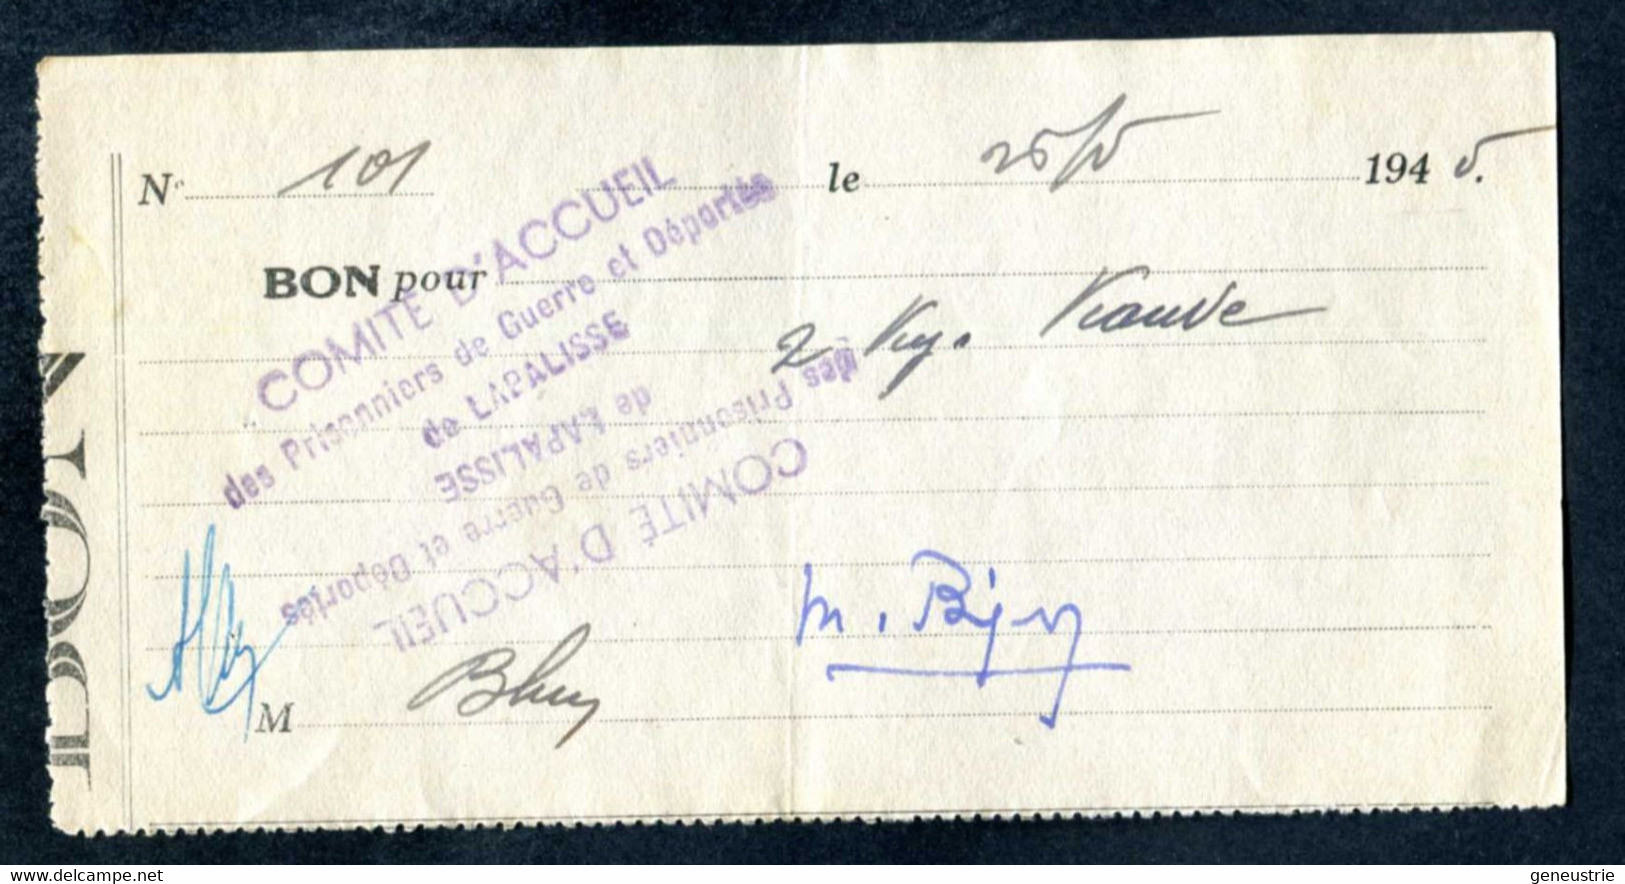 N° 101 le 25/5 1945.
BON pour
2 Kg. Viande
COMITÉ D'ACCUEIL
des Prisonniers de Guerre et Déportés
de LAPALISSE
de LAPALISSE
des Prisonniers de Guerre et Déportés
COMITÉ D'ACCUEIL
M
BON
www.delcampe.net
geneustrie